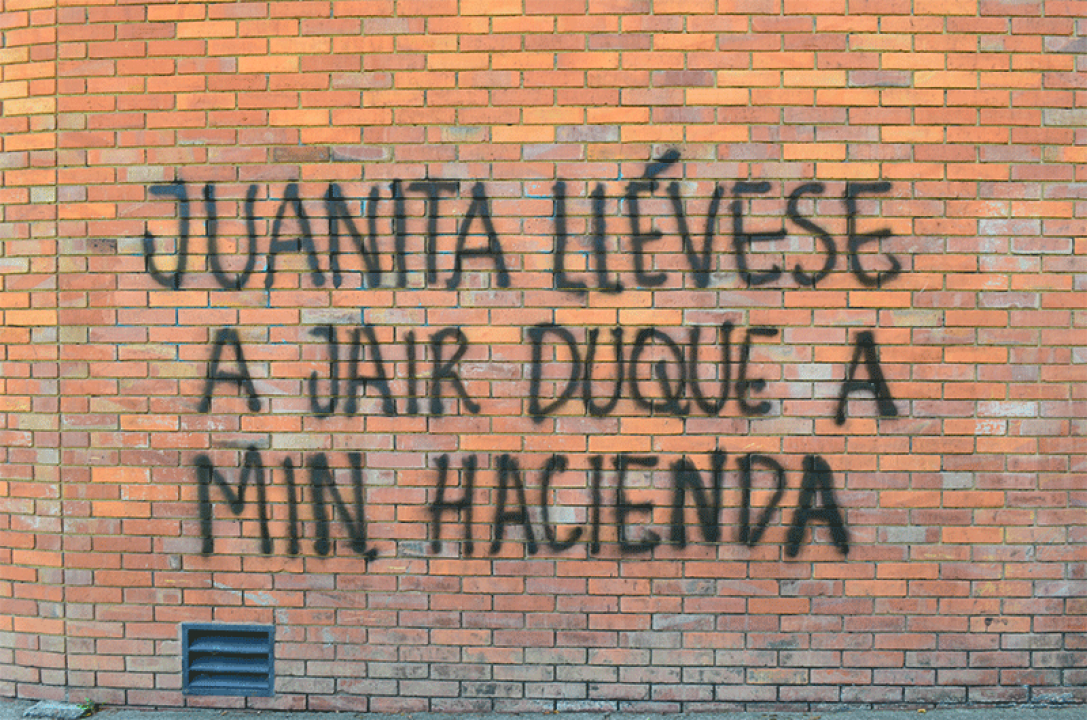 JUANITA LLÉVESE
A JAIR DUQUE A
MIN. HACIENDA